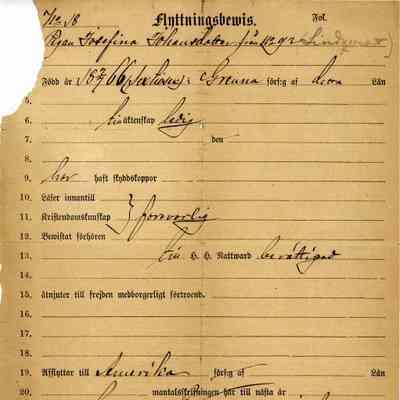 Flyttningsbewis. Fol.
Pigan Josefina Johansdotter från N:o 92
Född år 18 7/6 66 i Grenna förs:g af Län
5.
6. till äktenskap ledig
7. den
8.
9. har haft skyddskoppor
10. Läser innantill
11. Kristendomskunskap } försvarlig
12. Bewistat förhören
13. till H. H. Nattward berättigad
14.
15. åtnjuter till frejden medborgerligt förtroend.
16.
17.
18.
19. Afflyttar till Amerika förs:g af Län
20. mantalsskrifningen har till nästa år